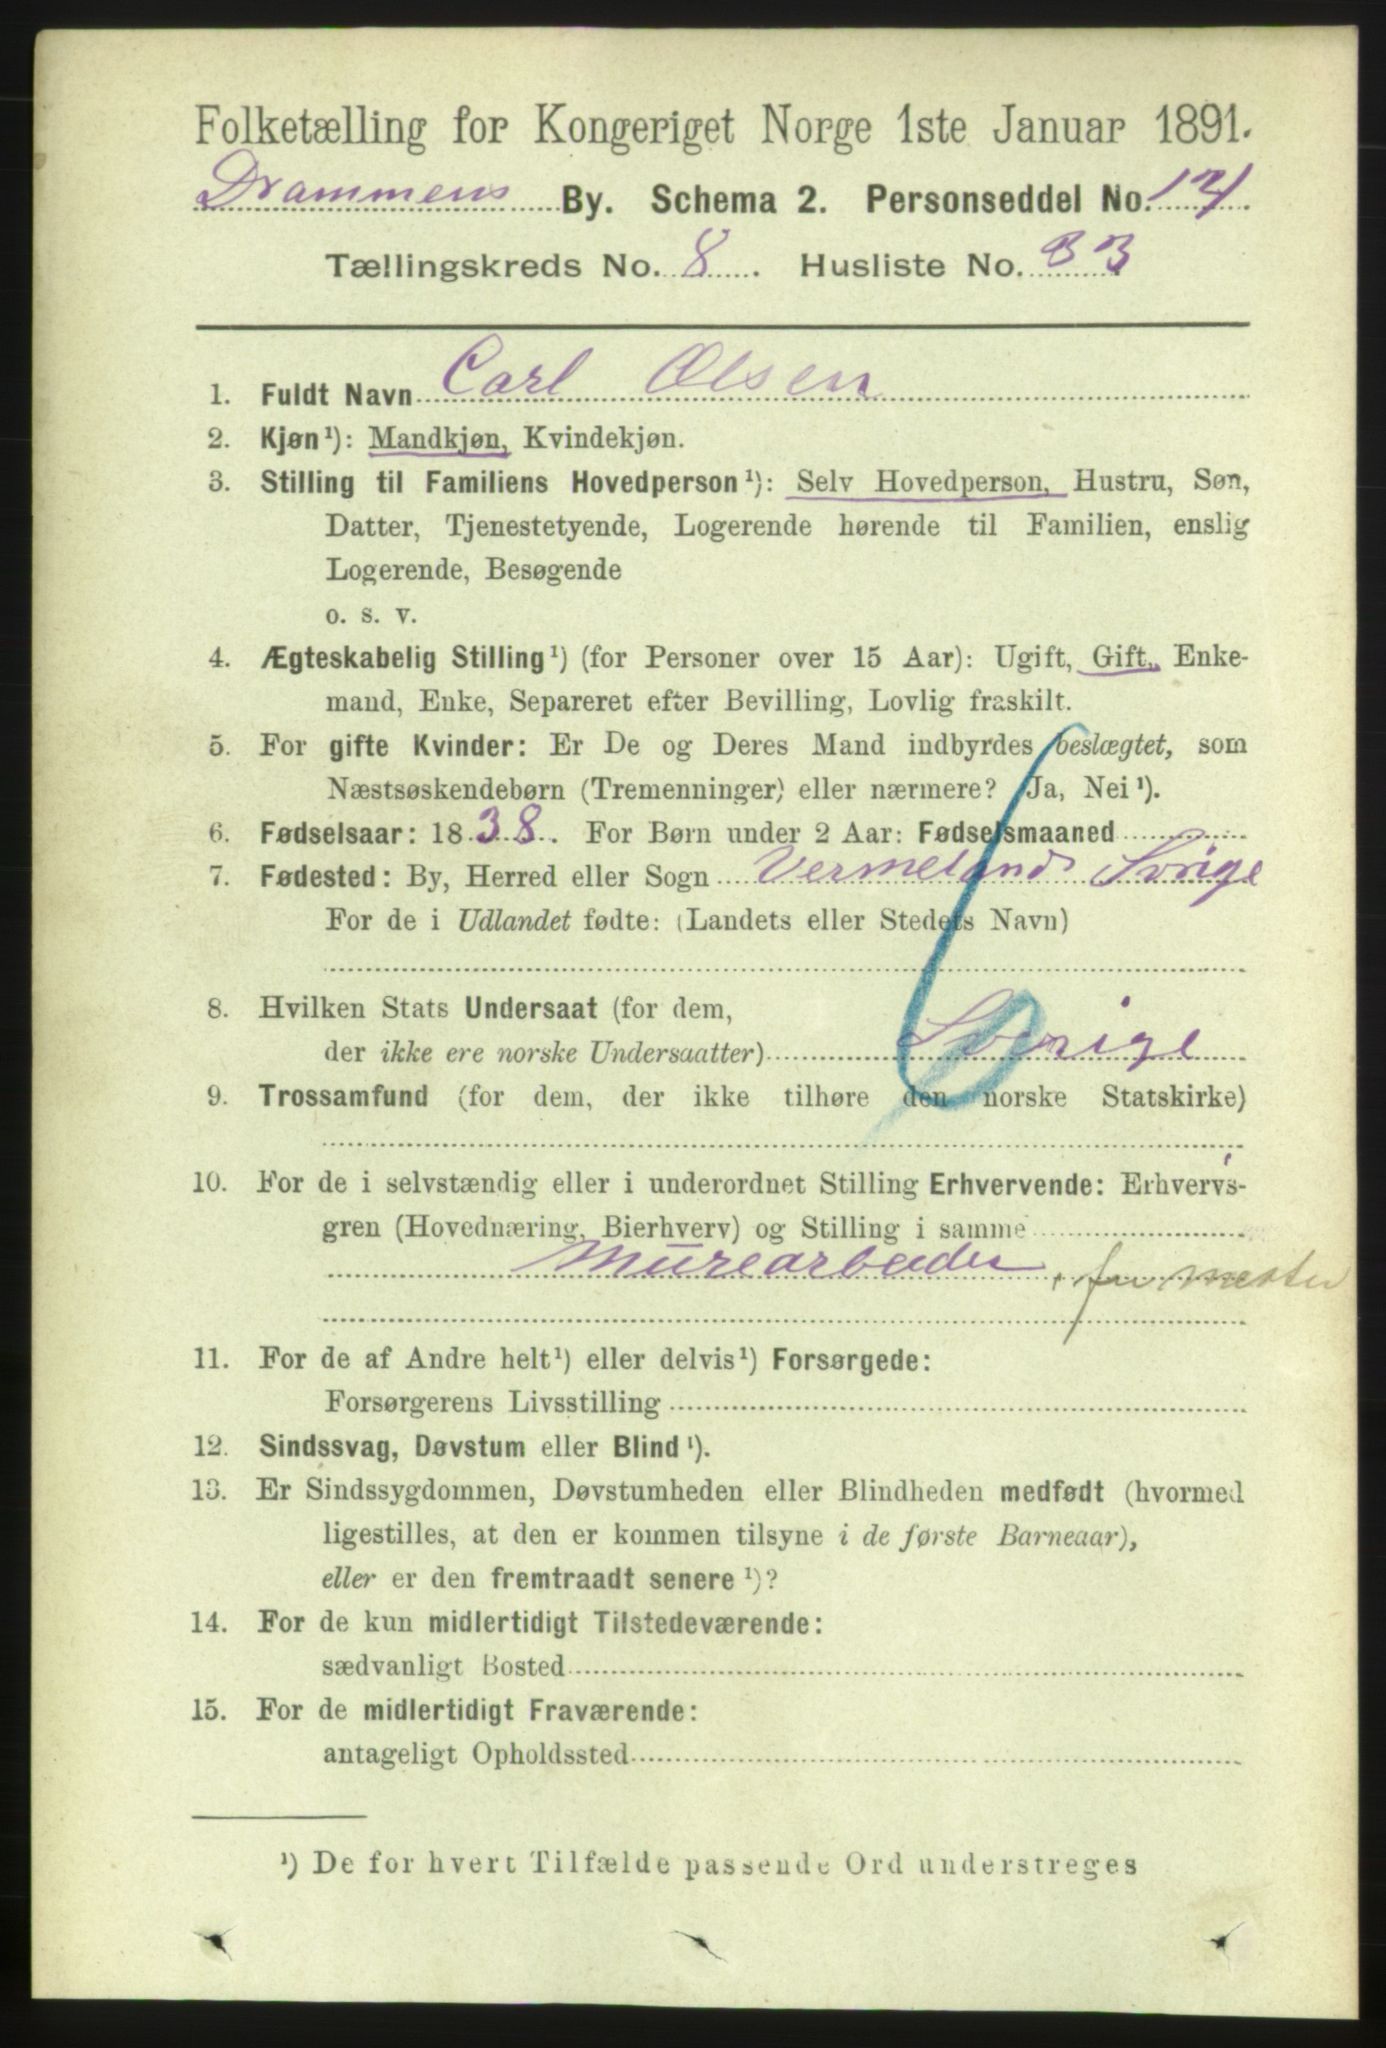 Folketælling for Kongeriget Norge 1ste Januar 1891.
Drammens By. Schema 2. Personseddel No.
Tællingskreds No. 8. Husliste No. 33
1. Fuldt Navn Carl Olsen
2. Kjøn¹): Mandkjøn, Kvindekjøn.
3. Stilling til Familiens Hovedperson¹): Selv Hovedperson, Hustru, Søn,
Datter, Tjenestetyende, Logerende hørende til Familien, enslig
Logerende, Besøgende
o. s. v.
4. Ægteskabelig Stilling¹) (for Personer over 15 Aar): Ugift, Gift, Enke-
mand, Enke, Separeret efter Bevilling, Lovlig fraskilt.
5. For gifte Kvinder: Er De og Deres Mand indbyrdes beslægtet, som
Næstsøskendebørn (Tremenninger) eller nærmere? Ja, Nei¹).
6. Fødselsaar: 1838. For Børn under 2 Aar: Fødselsmaaned
7. Fødested: By, Herred eller Sogn Vermeland Sverige
For de i Udlandet fødte: (Landets eller Stedets Navn)
8. Hvilken Stats Undersaat (for dem,
der ikke ere norske Undersaatter) Sverige
9. Trossamfund (for dem, der ikke tilhøre den norske Statskirke)
10. For de i selvstændig eller i underordnet Stilling Erhvervende: Erhvervs-
gren (Hovednæring, Bierhverv) og Stilling i samme
Murearbeider, for mester
11. For de af Andre helt¹) eller delvis¹) Forsørgede:
Forsørgerens Livsstilling
12. Sindssvag, Døvstum eller Blind¹).
13. Er Sindssygdommen, Døvstumheden eller Blindheden medfødt (hvormed
ligestilles, at den er kommen tilsyne i de første Barneaar),
eller er den fremtraadt senere¹)?
14. For de kun midlertidigt Tilstedeværende:
sædvanligt Bosted
15. For de midlertidigt Fraværende:
antageligt Opholdssted
¹) De for hvert Tilfælde passende Ord understreges